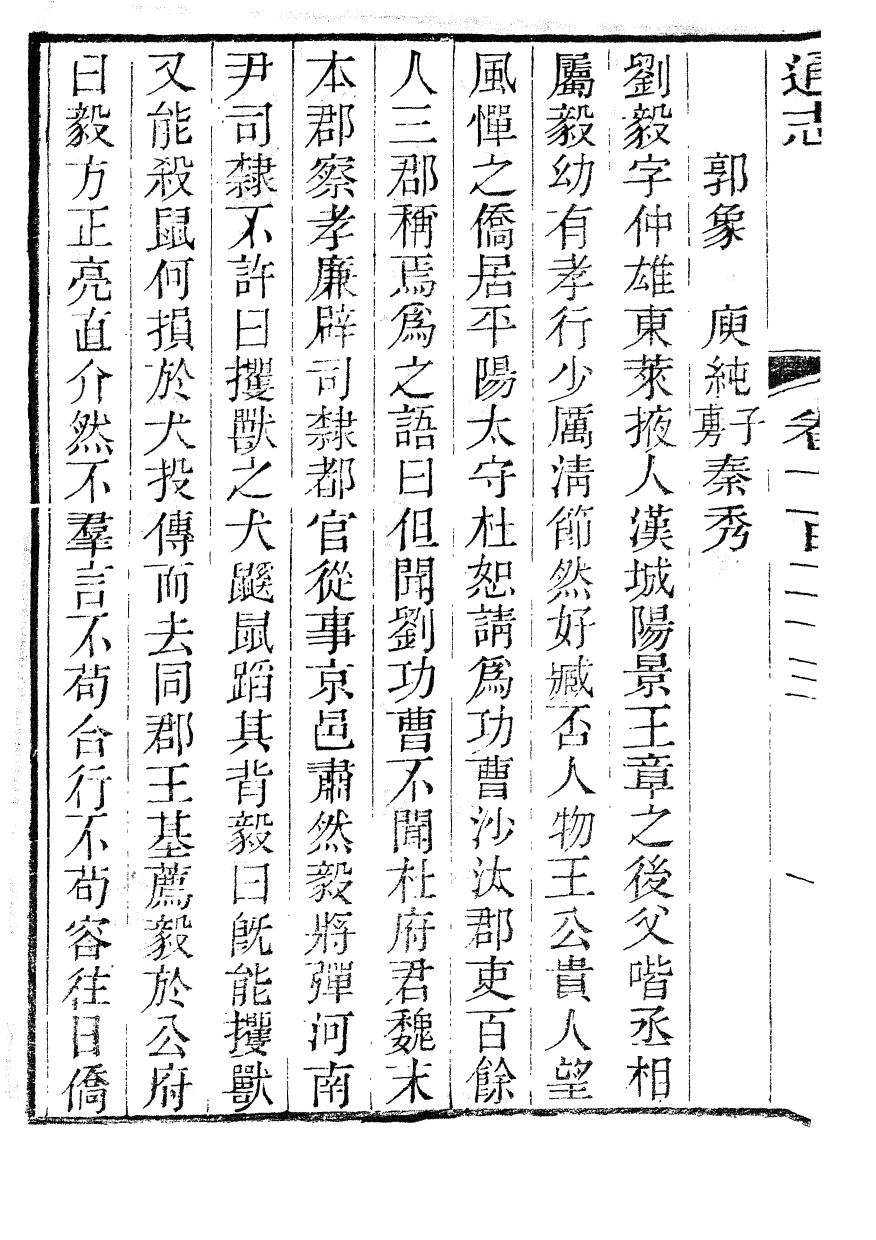 通志 卷一百二十三 一
郭象 庾純子旉秦秀
劉毅字仲雄東萊掖人漢城陽景王章之後父喈丞相
屬毅幼有孝行少厲淸節然好臧否人物王公貴人望
風憚之僑居平陽太守杜恕請爲功曹沙汰郡吏百餘
人三郡稱焉爲之語曰但聞劉功曹不聞杜府君魏末
本郡察孝廉辟司隸都官從事京邑肅然毅將彈河南
尹司隸不許曰攫獸之犬鼷鼠蹈其背毅曰旣能攫獸
又能殺鼠何損於犬投傳而去同郡王基薦毅於公府
曰毅方正亮直介然不羣言不苟合行不苟容往日僑